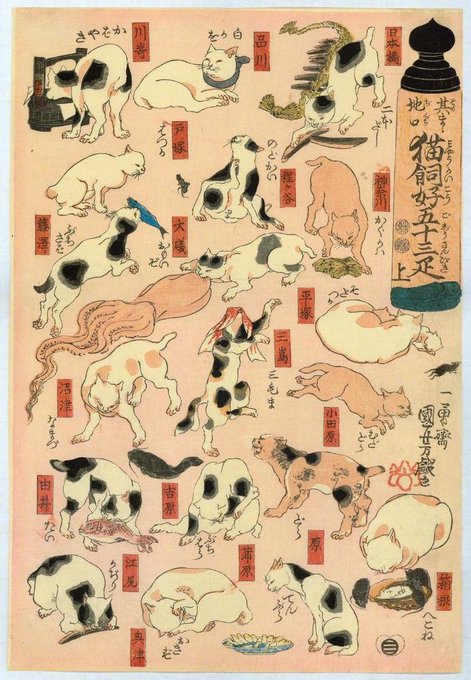 其まゝ
地口
猫飼好五十三疋
上
日本橋
二本だし
品川
白かを
川嵜
かばやき
神奈川
かぐかハ
程ヶ谷
のどかい
戸塚
はつか
平塚
そだつか
大磯
おもいぞ
藤澤
ぶちさば
小田原
むだどら
三嶌
三毛ま
沼津
なまづ
箱根
へこね
原
どら
吉原
ぶちはら
蒲原
てんぷら
由井
たい
江尻
かぢり
奥津
おきず
一勇齋
國芳戯画